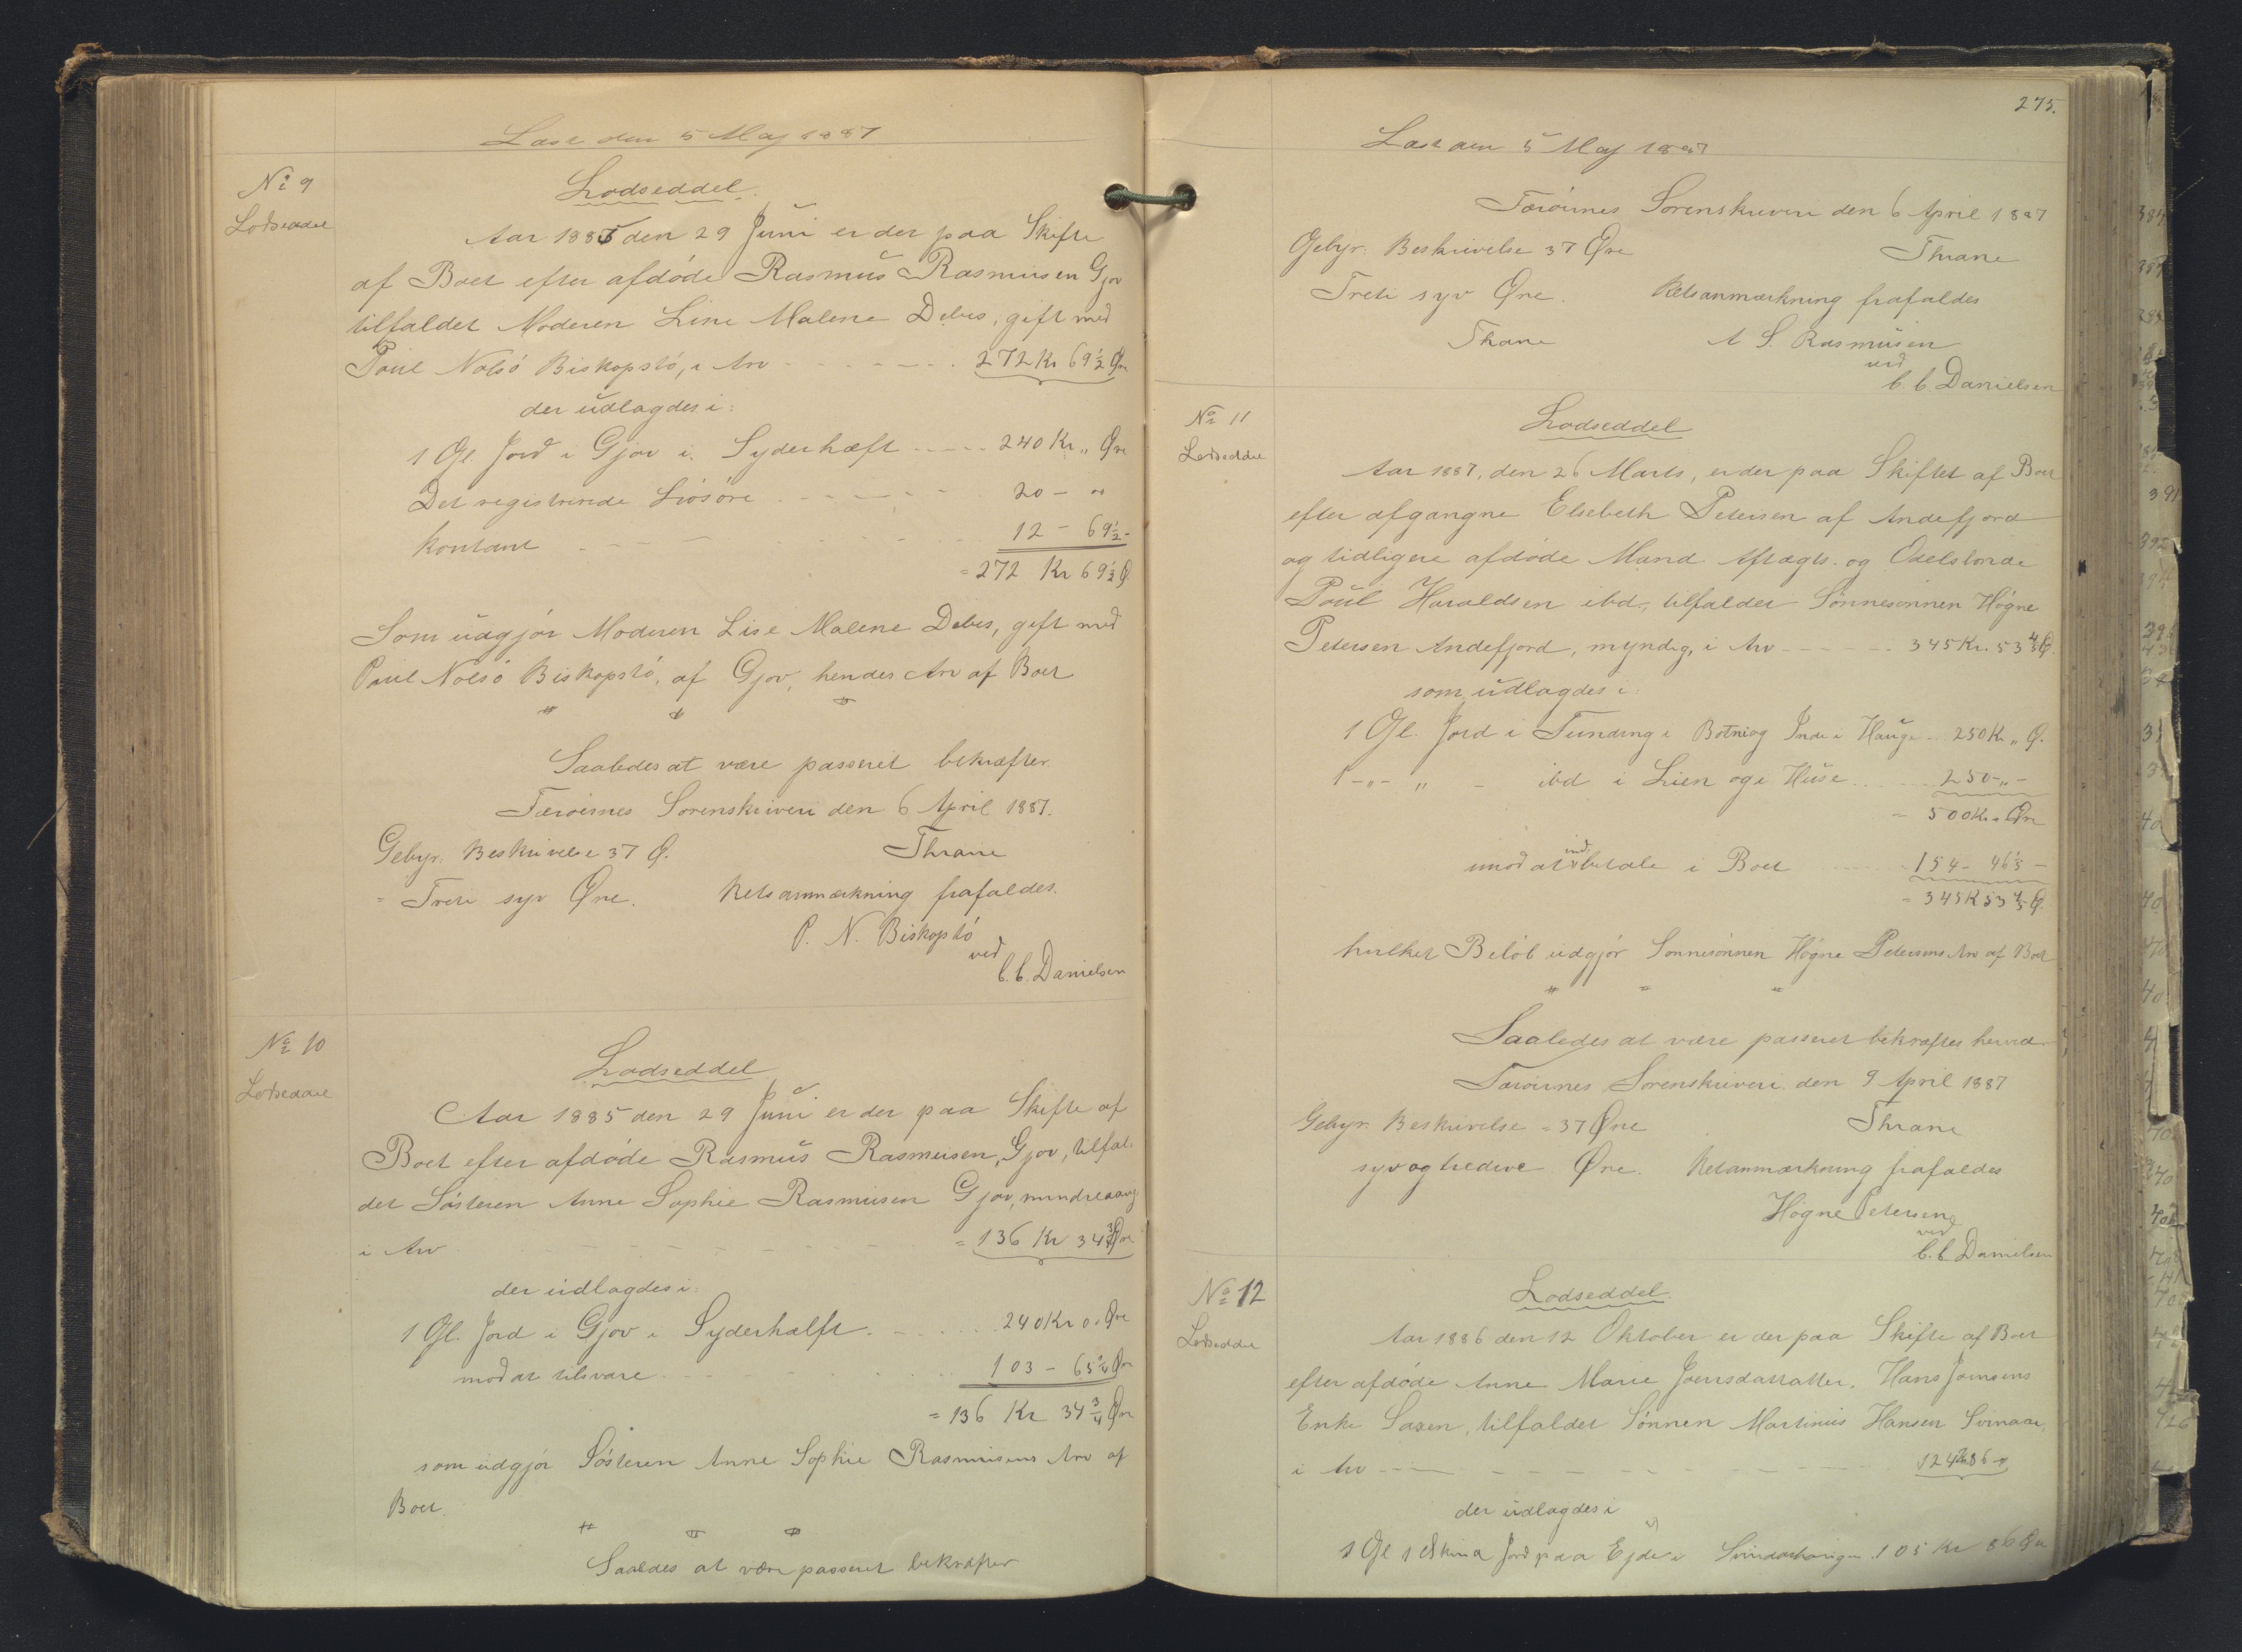 Læst den 5 Maj 1887
No 9
Lodseddel
Lodseddel.
Aar 1885 den 29 Juni er der paa Skifte
af Boet efter afdøde Rasmus Rasmussen Gjov
tilfaldet Moderen Line Malene Debes, gift med
Poul Nolsö Biskopstö, i Arv - - - - - 272 Kr 69½ Øre
der udlagdes i:
1 Gl. Jord i Gjov i Syderhæft - - - - 240 Kr. „ Øre
Det registrerede Løsøre - - - - - 20 - „
kontant - - - - - 12 - 69½ -
= 272 Kr 69½ Ø.
Som udgjør Moderen Lise Malene Debes, gift med
Poul Nolsö Biskopstö, af Gjov, hendes Arv af Boet
Saaledes at være passeret bekræfter.
Færøernes Sorenskriveri den 6 April 1887.
Gebyr. Beskrivelse 37 Ø. Thrane
= Treti syv Øre. Retsanmærkning frafaldes.
P. N. Biskopstö
ved
C. C. Danielsen
No 10
Lodseddel
Lodseddel
Aar 1885 den 29 Juni er der paa Skifte af
Boet efter afdøde Rasmus Rasmussen, Gjov, tilfal-
det Søsteren Anne Sophie Rasmussen Gjov, mindreaarig
i Arv - - - - - = 136 Kr 34¾ Øre
der udlagdes i:
1 Gl. Jord i Gjov i Syderhalft. - - - - 240 Kr 0 „ Øre
mod at tilsvare - - - - - 103 - 65¼ Øre
= 136 Kr 34¾ Øre
som udgjør Søsteren Anne Sophie Rasmussens Arv af
Boet.
Saaledes at være passeret bekræfter
275.
Læst den 5 Maj 1887
Færøernes Sorenskriveri den 6 April 1887
Gebyr. Beskrivelse 37 Øre Thrane
Treti syv Øre. Retsanmærkning frafaldes
Thrane A S. Rasmussen
ved
C. C. Danielsen
No 11
Lodseddel
Lodseddel
Aar 1887, den 26 Marts, er der paa Skiftet af Boet
efter afgangne Elsebeth Petersen af Andefjord
og tidligere afdøde Mand Aftægts- og Odelsbonde
Poul Haraldsen ibd., tilfaldet Sønnesønnen Högne
Petersen Andefjord, myndig, i Arv - - - - - 345 Kr. 53⅘ Ø.
som udlagdes i:
1 Gl. Jord i Funding i Botni og Inde i Hauge - 250 Kr „ Ø.
1 - „ - „ - ibd i Lien og i Huse - - - 250 - „ -
= 500 Kr „ Øre
imod at indbetale i Boet - - - 154 - 46⅕ -
= 345 K 53⅘ Ø.
hvilket Beløb udgjør Sønnesønnen Högne Petersens Arv af Boet
Saaledes at være passeret bekræftes herved
Færøernes Sorenskriveri den 9 April 1887
Gebyr. Beskrivelse = 37 Øre Thrane
syv og tredive Øre. Retsanmærkning frafaldes
Högne Petersen
ved
C. C. Danielsen
No 12
Lodseddel
Lodseddel.
Aar 1886 den 12 Oktober er der paa Skifte af Boet
efter afdøde Anne Marie Joensdattatter, Hans Joensens
Enke Saxen, tilfaldet Sønnen Martinus Hansen Svinaar,
i Arv - - - - - 124 Kr 86 Ø
der udlagdes i
1 Gl 1 Skind Jord paa Ejde i 105 Kr 86 Øre